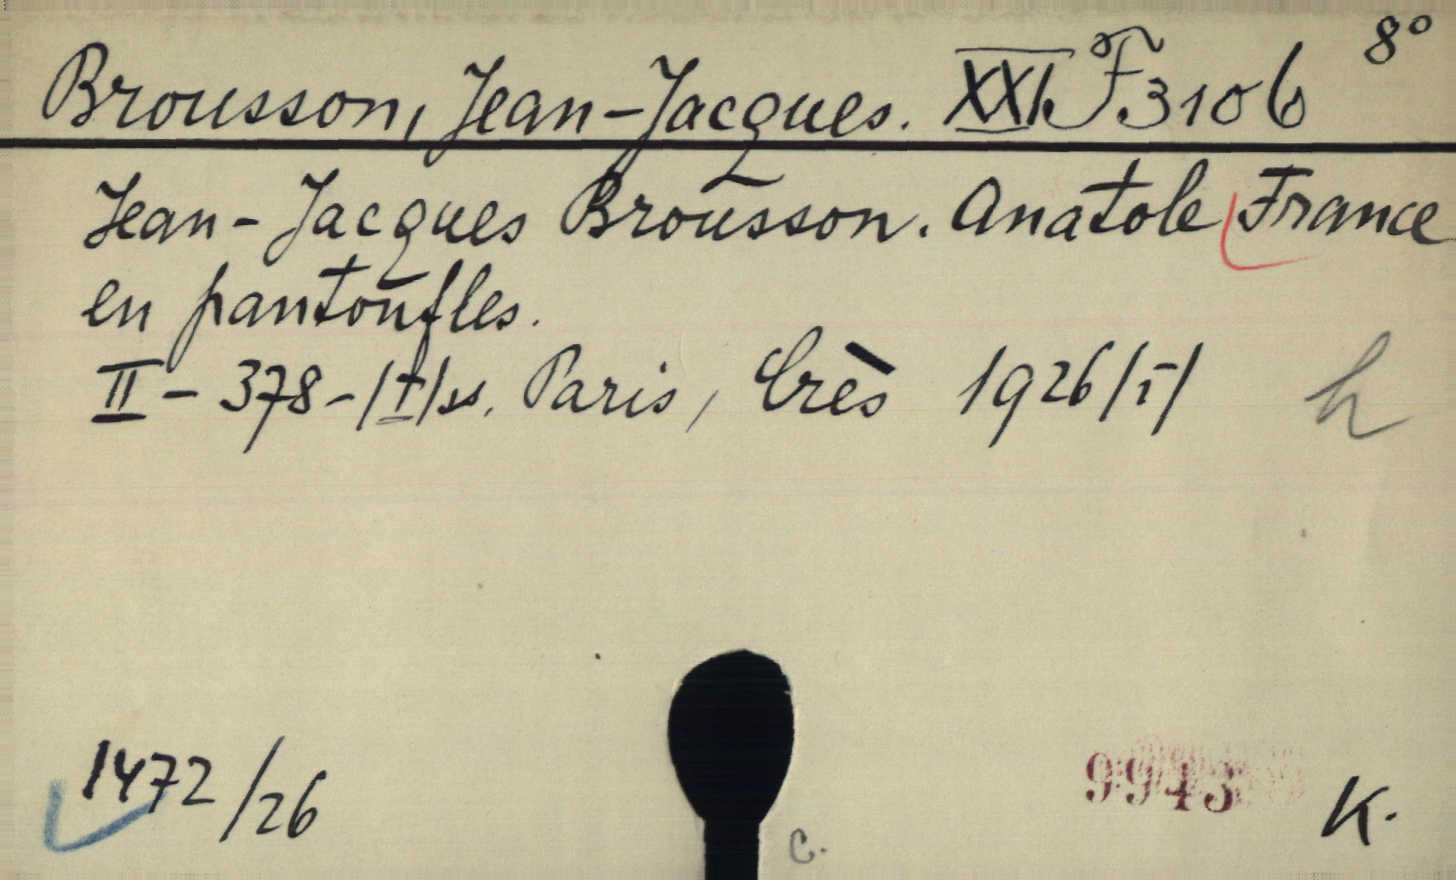 8°
Brousson, Jean-Jacques. XXI. F. 3106
Jean-Jacques Broūsson. Anatole France
en pantoūfles.
II - 378 - /I/ ss. Paris, Crès 1926/5/
h
1472/26
9943
K.
c.